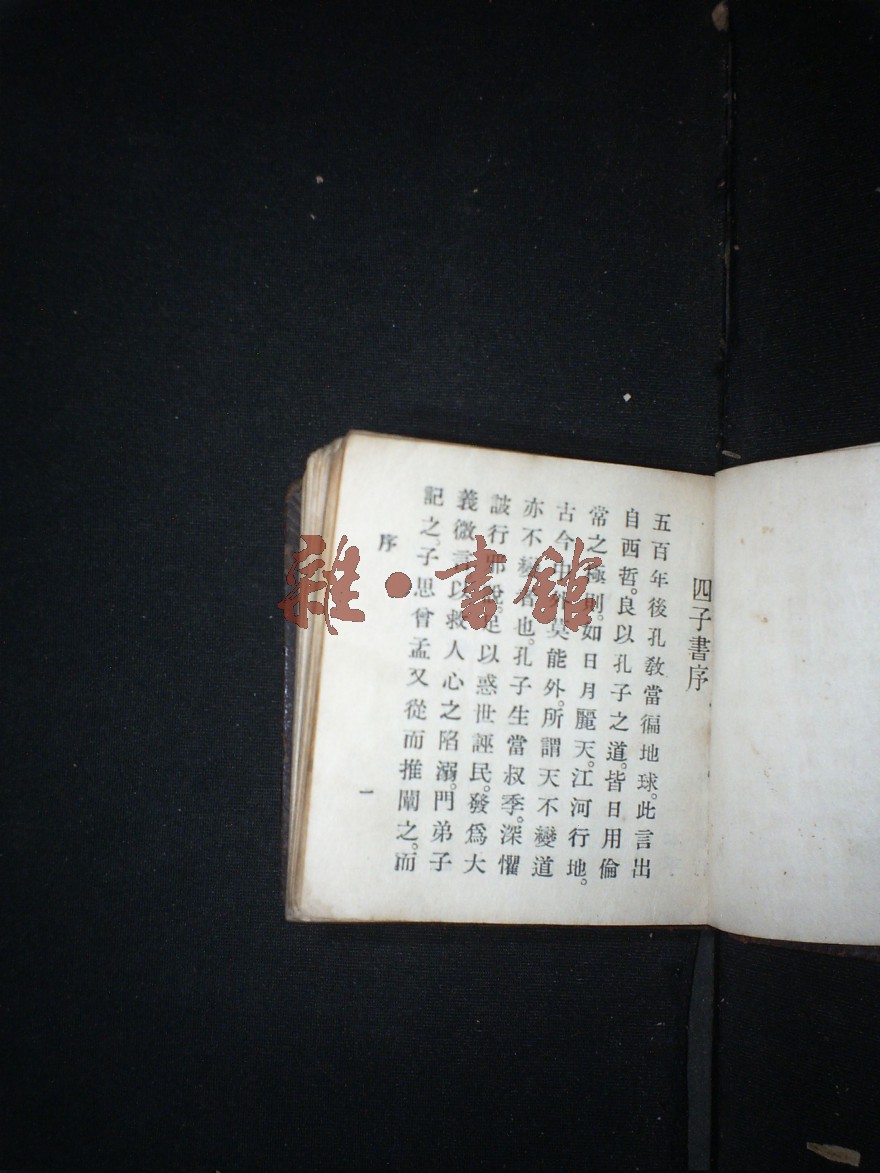 四子書序
五百年後孔敎當徧地球。此言出
自西哲。良以孔子之道。皆日用倫
常之極則。如日月麗天。江河行地。
古今中外莫能外。所謂天不變道
亦不變者也。孔子生當叔季。深懼
詖行邪說足以惑世誣民。發爲大
義微言以救人心之陷溺。門弟子
記之。子思曾孟又從而推闡之。而
序
一
雜·書館